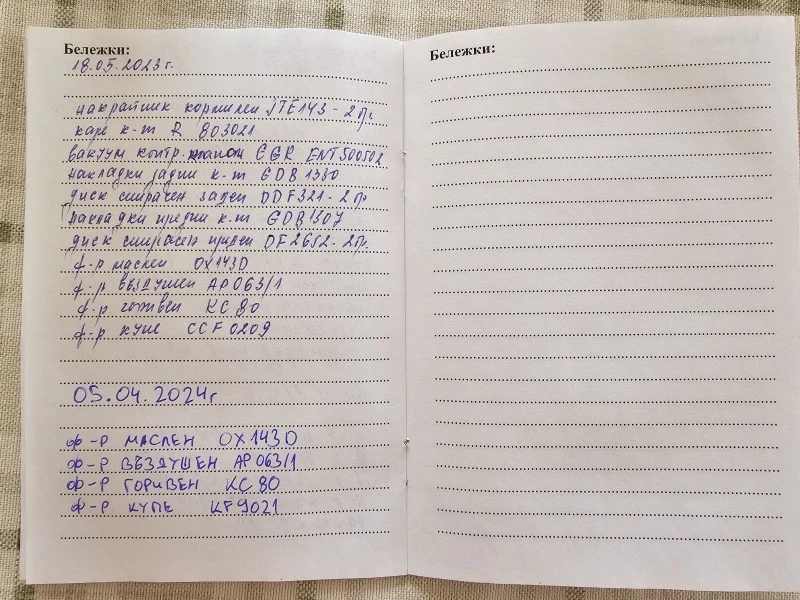 Бележки:
18.05.2023г.
накрайник кормилен JTE143 - 2бр.
каре к-т R 803021
вакуум контр. клапан EGR ENT500502
накладки задни к-т GDB1330
диск спирачен заден DDF321 - 2бр
накладки предни к-т GDB1307
диск спирачен преден DF2652 - 2бр.
ф-р маслен OX143D
ф-р въздушен AP063/1
ф-р горивен KC80
ф-р купе CCF0209
05.04.2024г
ф-р МАСЛЕН OX143D
ф-р ВЪЗДУШЕН AP063/1
ф-р ГОРИВЕН KC80
ф-р КУПЕ KF9021
Бележки: